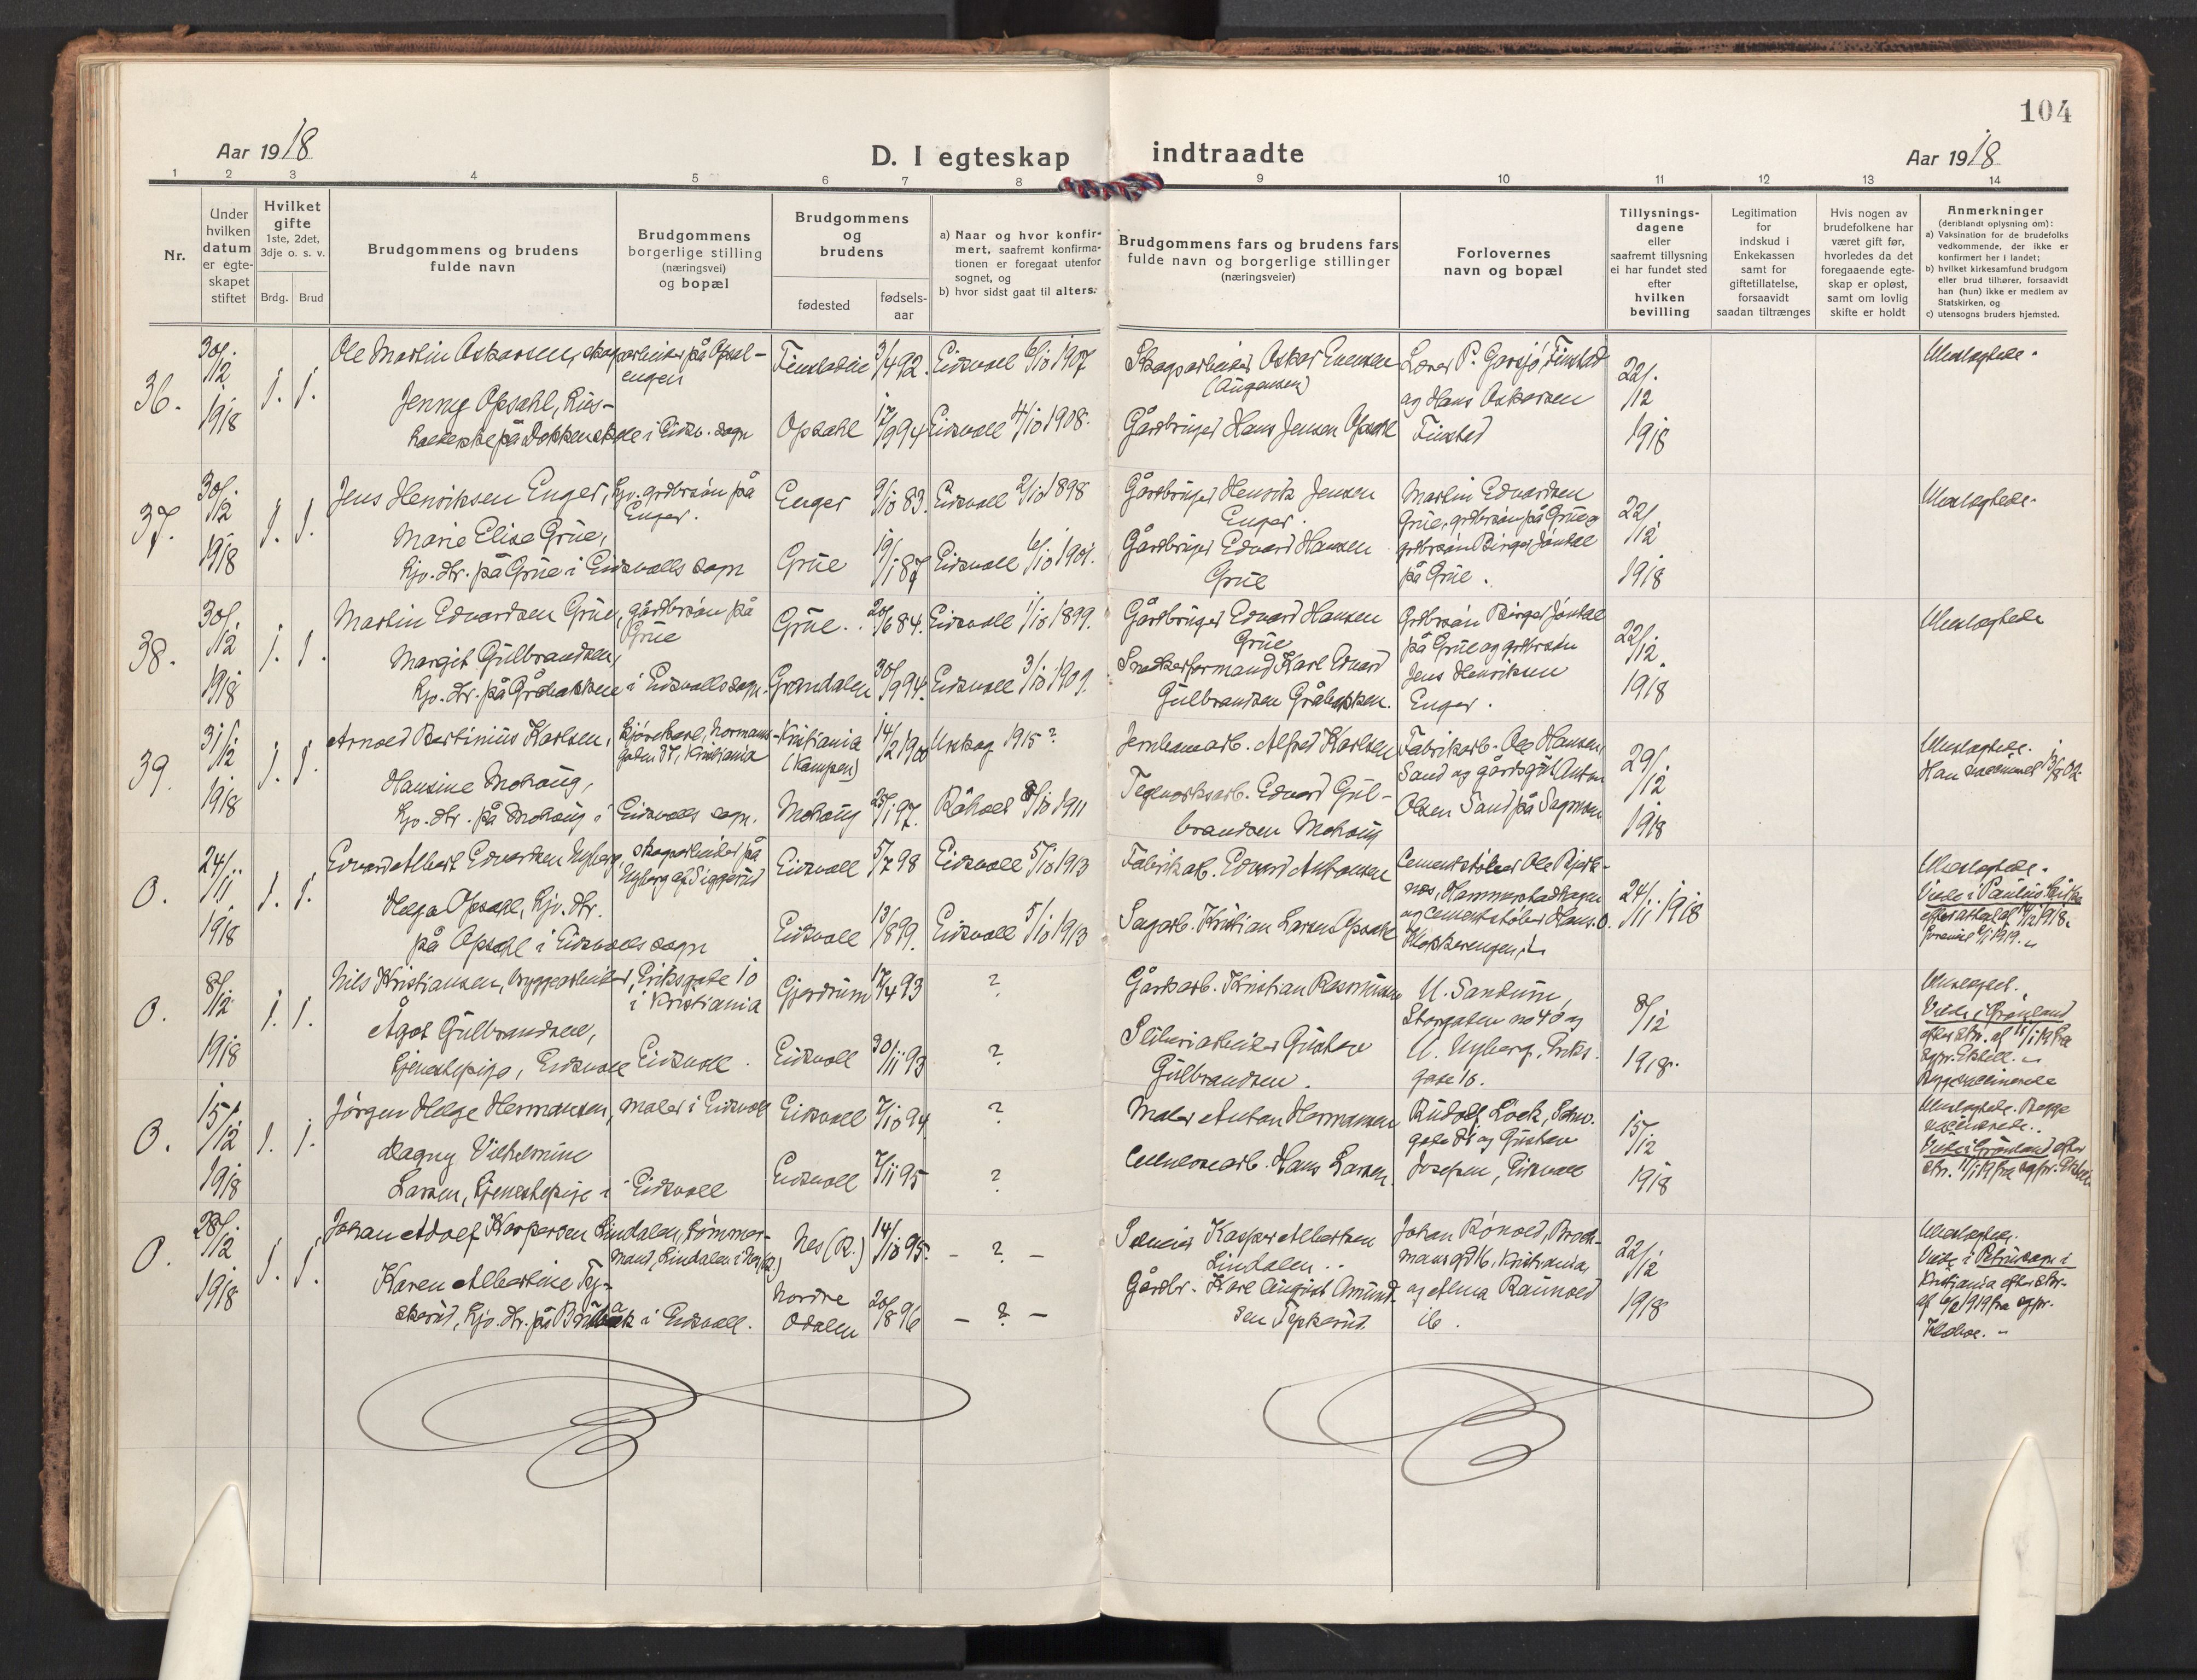 104
Aar 1918
D. I egteskap indtraadte
Aar 1918
1 2 3 4 5 6 7 8 9 10 11 12 13 14
Nr.
Under hvilken datum er egteskapet stiftet
Hvilket gifte
1ste, 2det, 3dje o. s. v.
Brdg. Brud
Brudgommens og brudens fulde navn
Brudgommens borgerlige stilling (næringsvei) og bopæl
Brudgommens og brudens
fødested
fødselsaar
a) Naar og hvor konfirmert, saafremt konfirmationen er foregaat utenfor sognet, og
b) hvor sidst gaat til alters.
Brudgommens fars og brudens fars fulde navn og borgerlige stillinger (næringsveier)
Forlovernes navn og bopæl
Tillysningsdagene eller saafremt tillysning ei har fundet sted efter hvilken bevilling
Legitimation for indskud i Enkekassen samt for giftetillatelse, forsaavidt saadan tiltrænges
Hvis nogen av brudefolkene har været gift før, hvorledes da det foregaaende egteskap er opløst, samt om lovlig skifte er holdt
Anmerkninger
(deriblandt oplysning om):
a) Vaksination for de brudefolks vedkommende, der ikke er konfirmert her i landet;
b) hvilket kirkesamfund brudgom eller brud tilhører, forsaavidt han (hun) ikke er medlem av Statskirken, og
c) utensogns bruders hjemsted.
36.
30/12 1918
1. 1.
Ole Martin Oskarsen, skogarbeider på Opsal-
engen
3/4 92. Eidsvoll 6/10 1907
Skogsarbeider Oskar Evensen
Lærer P. Garsjö, Finstad
22/12 1918
Ubeslægtede.
Jenny Opsahl,
i Eidsv. sogn
Opsahl 17/9 94 Eidsvoll 4/10 1908.
Gårdbruger Hans Jensen Opsahl
og Hans Oskarsen
Finstad
37.
30/12 1918
1. 1.
Jens Henriksen Enger, hjv. grdbrsön på
Enger.
Enger 9/10 83. Eidsvoll 2/10 1898
Gårdbruger Henrik Jensen
Enger.
Martin Edvardsen
Grue, grdbrsön på Grue og
22/12 1918
Ubeslægtede.
Marie Elise Grue,
hjv. dtr. på Grue i Eidsvolls sogn
Grue 19/1 87 Eidsvoll 6/10 1901.
Gårdbruger Edvard Hansen
Grue
grdbrsön Birger Jöndal
på Grue.
38.
30/12 1918
1. 1.
Martin Edvardsen Grue, gårdbrsön på
Grue
Grue. 20/6 84. Eidsvoll 1/10 1899.
Gårdbruger Edvard Hansen
Grue
Grdbrsön Birger Jöndal
på Grue og grdbrsön
22/12 1918
Ubeslægtede
Margit Gulbrandsen,
hjv. dtr. på Gråbakken i Eidsvolls sogn.
Grandalen 30/9 94. Eidsvoll 3/10 1909.
Snedkerformand Karl Edvard
Gulbrandsen Gråbakken.
Jens Henriksen
Enger.
39.
31/12 1918
1. 1.
Arnold Bertinius Karlsen, kjörekarl, Normans-
gaden 37, Kristiania
Kristiania
(Kampen)
14/2 1900 Urskog 1915?
Jernbanearb. Alfred Karlsen
Fabrikarb. Ole Hansen
Sand og gårdsgut Anton
Olsen Sand på Sagmoen
29/12 1918
Ubeslægtede.
Hansine Mohaug,
hjv. dtr. på Mohaug i Eidsvolls sogn.
Mohaug 25/1 97. Råholt 8/10 1911
Teglverksarb. Edvard Gul-
brandsen Mohaug
0.
24/11 1918
1. 1.
Edvard Albert Edvardsen Nyberg, skogarbeider på
Nyberg af Siggerud
Eidsvoll 5/7 98 Eidsvoll 5/10 1913
Fabrikarb. Edvard Antonsen
Cementstöber Ole Bjerk-
næs, Hammerstadhagen
og cementstöber Hans O.
Klokkerengen,
24/11 1918
Ubeslægtede.
Viede i Paulus kirke
Helga Opsahl, hjv. dtr.
på Opsahl i Eidsvolls sogn
Eidsvoll 13/8 99. Eidsvoll 5/10 1913
Sagarb. Kristian Larsen Opsahl
0.
8/12 1918
1. 1.
Nils Kristiansen, bryggearbeider, Eriksgate 10
i Kristiania
Gjerdrum 17/4 93 ?
Gårdsarb. Kristian Rasmussen
U. Sandum,
Storgaten no 40 og
U. Nyberg, Eriks-
gate 10.
8/12 1918.
Viede i Grønland
Ågot Gulbrandsen,
tjenestepige, Eidsvoll Eidsvoll.
Eidsvoll 30/11 93 ?
Sliberiarbeider Gustav
Gulbrandsen.
0.
15/12 1918
1. 1.
Jörgen Helge Hermansen, maler i Eidsvoll
Eidsvoll 7/10 94 ?
Maler Anton Hermansen
Rudolf Loek,
og Gustav
Josefsen, Eidsvoll
15/12 1918
Ubeslægtede. Begge
vaccinerede.
Viede i Grønland efter
Dagny Vilhelmine
Larsen, tjenestepige i Eidsvoll
Eidsvoll 7/11 95 ?
Cellulosearb. Hans Larsen
0.
28/12 1918
1. 1.
Johan Adolf Kaspersen Lindalen, tömmer-
mand, Lindalen i Nes (R.)
Nes (R.) 14/10 95. – ? –
Kasper Albertsen
Lindalen
Johan Rönold, Broch-
mans gd 16, Kristiania,
og Alma Raunold
ib.
22/12 1918
Ubeslægtede.
Viede i Petrus sogn i
Kristiania efter attr.
Karen Albertine Ty-
skerud, hjv. dtr. på i Eidsvoll.
Nordre
Odalen
20/8 96 – ? –
Gårdbr. Karl August Amund-
sen Tyskerud